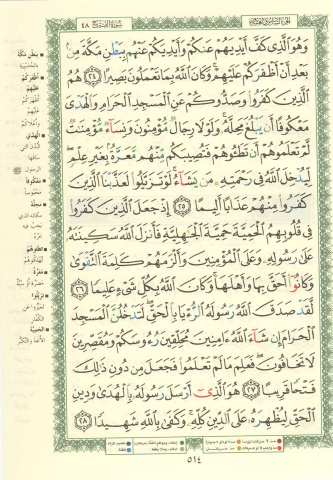 الجزء السادس والعشرون
سورة الفتح ٤٨
وَهُوَ ٱلَّذِى كَفَّ أَيْدِيَهُمْ عَنكُمْ وَأَيْدِيَكُمْ عَنْهُم بِبَطْنِ مَكَّةَ مِنۢ
بَعْدِ أَنْ أَظْفَرَكُمْ عَلَيْهِمْ وَكَانَ ٱللَّهُ بِمَا تَعْمَلُونَ بَصِيرًا ٢٤ هُمُ
ٱلَّذِينَ كَفَرُوا۟ وَصَدُّوكُمْ عَنِ ٱلْمَسْجِدِ ٱلْحَرَامِ وَٱلْهَدْىَ
مَعْكُوفًا أَن يَبْلُغَ مَحِلَّهُۥ وَلَوْلَا رِجَالٌ مُّؤْمِنُونَ وَنِسَآءٌ مُّؤْمِنَٰتٌ
لَّمْ تَعْلَمُوهُمْ أَن تَطَـُٔوهُمْ فَتُصِيبَكُم مِّنْهُم مَّعَرَّةٌۢ بِغَيْرِ عِلْمٍ
لِّيُدْخِلَ ٱللَّهُ فِى رَحْمَتِهِۦ مَن يَشَآءُ لَوْ تَزَيَّلُوا۟ لَعَذَّبْنَا ٱلَّذِينَ
كَفَرُوا۟ مِنْهُمْ عَذَابًا أَلِيمًا ٢٥ إِذْ جَعَلَ ٱلَّذِينَ كَفَرُوا۟
فِى قُلُوبِهِمُ ٱلْحَمِيَّةَ حَمِيَّةَ ٱلْجَٰهِلِيَّةِ فَأَنزَلَ ٱللَّهُ سَكِينَتَهُۥ
عَلَىٰ رَسُولِهِۦ وَعَلَى ٱلْمُؤْمِنِينَ وَأَلْزَمَهُمْ كَلِمَةَ ٱلتَّقْوَىٰ
وَكَانُوٓا۟ أَحَقَّ بِهَا وَأَهْلَهَا وَكَانَ ٱللَّهُ بِكُلِّ شَىْءٍ عَلِيمًا ٢٦
لَّقَدْ صَدَقَ ٱللَّهُ رَسُولَهُ ٱلرُّءْيَا بِٱلْحَقِّ لَتَدْخُلُنَّ ٱلْمَسْجِدَ
ٱلْحَرَامَ إِن شَآءَ ٱللَّهُ ءَامِنِينَ مُحَلِّقِينَ رُءُوسَكُمْ وَمُقَصِّرِينَ
لَا تَخَافُونَ فَعَلِمَ مَا لَمْ تَعْلَمُوا۟ فَجَعَلَ مِن دُونِ ذَٰلِكَ
فَتْحًا قَرِيبًا ٢٧ هُوَ ٱلَّذِىٓ أَرْسَلَ رَسُولَهُۥ بِٱلْهُدَىٰ وَدِينِ
ٱلْحَقِّ لِيُظْهِرَهُۥ عَلَى ٱلدِّينِ كُلِّهِۦ وَكَفَىٰ بِٱللَّهِ شَهِيدًا ٢٨
ببطن مكة
أظفركم
عليهم
الهدى
معكوفا
محله
تطئوهم
معرة
تزيلوا
الحمية
٥١٤